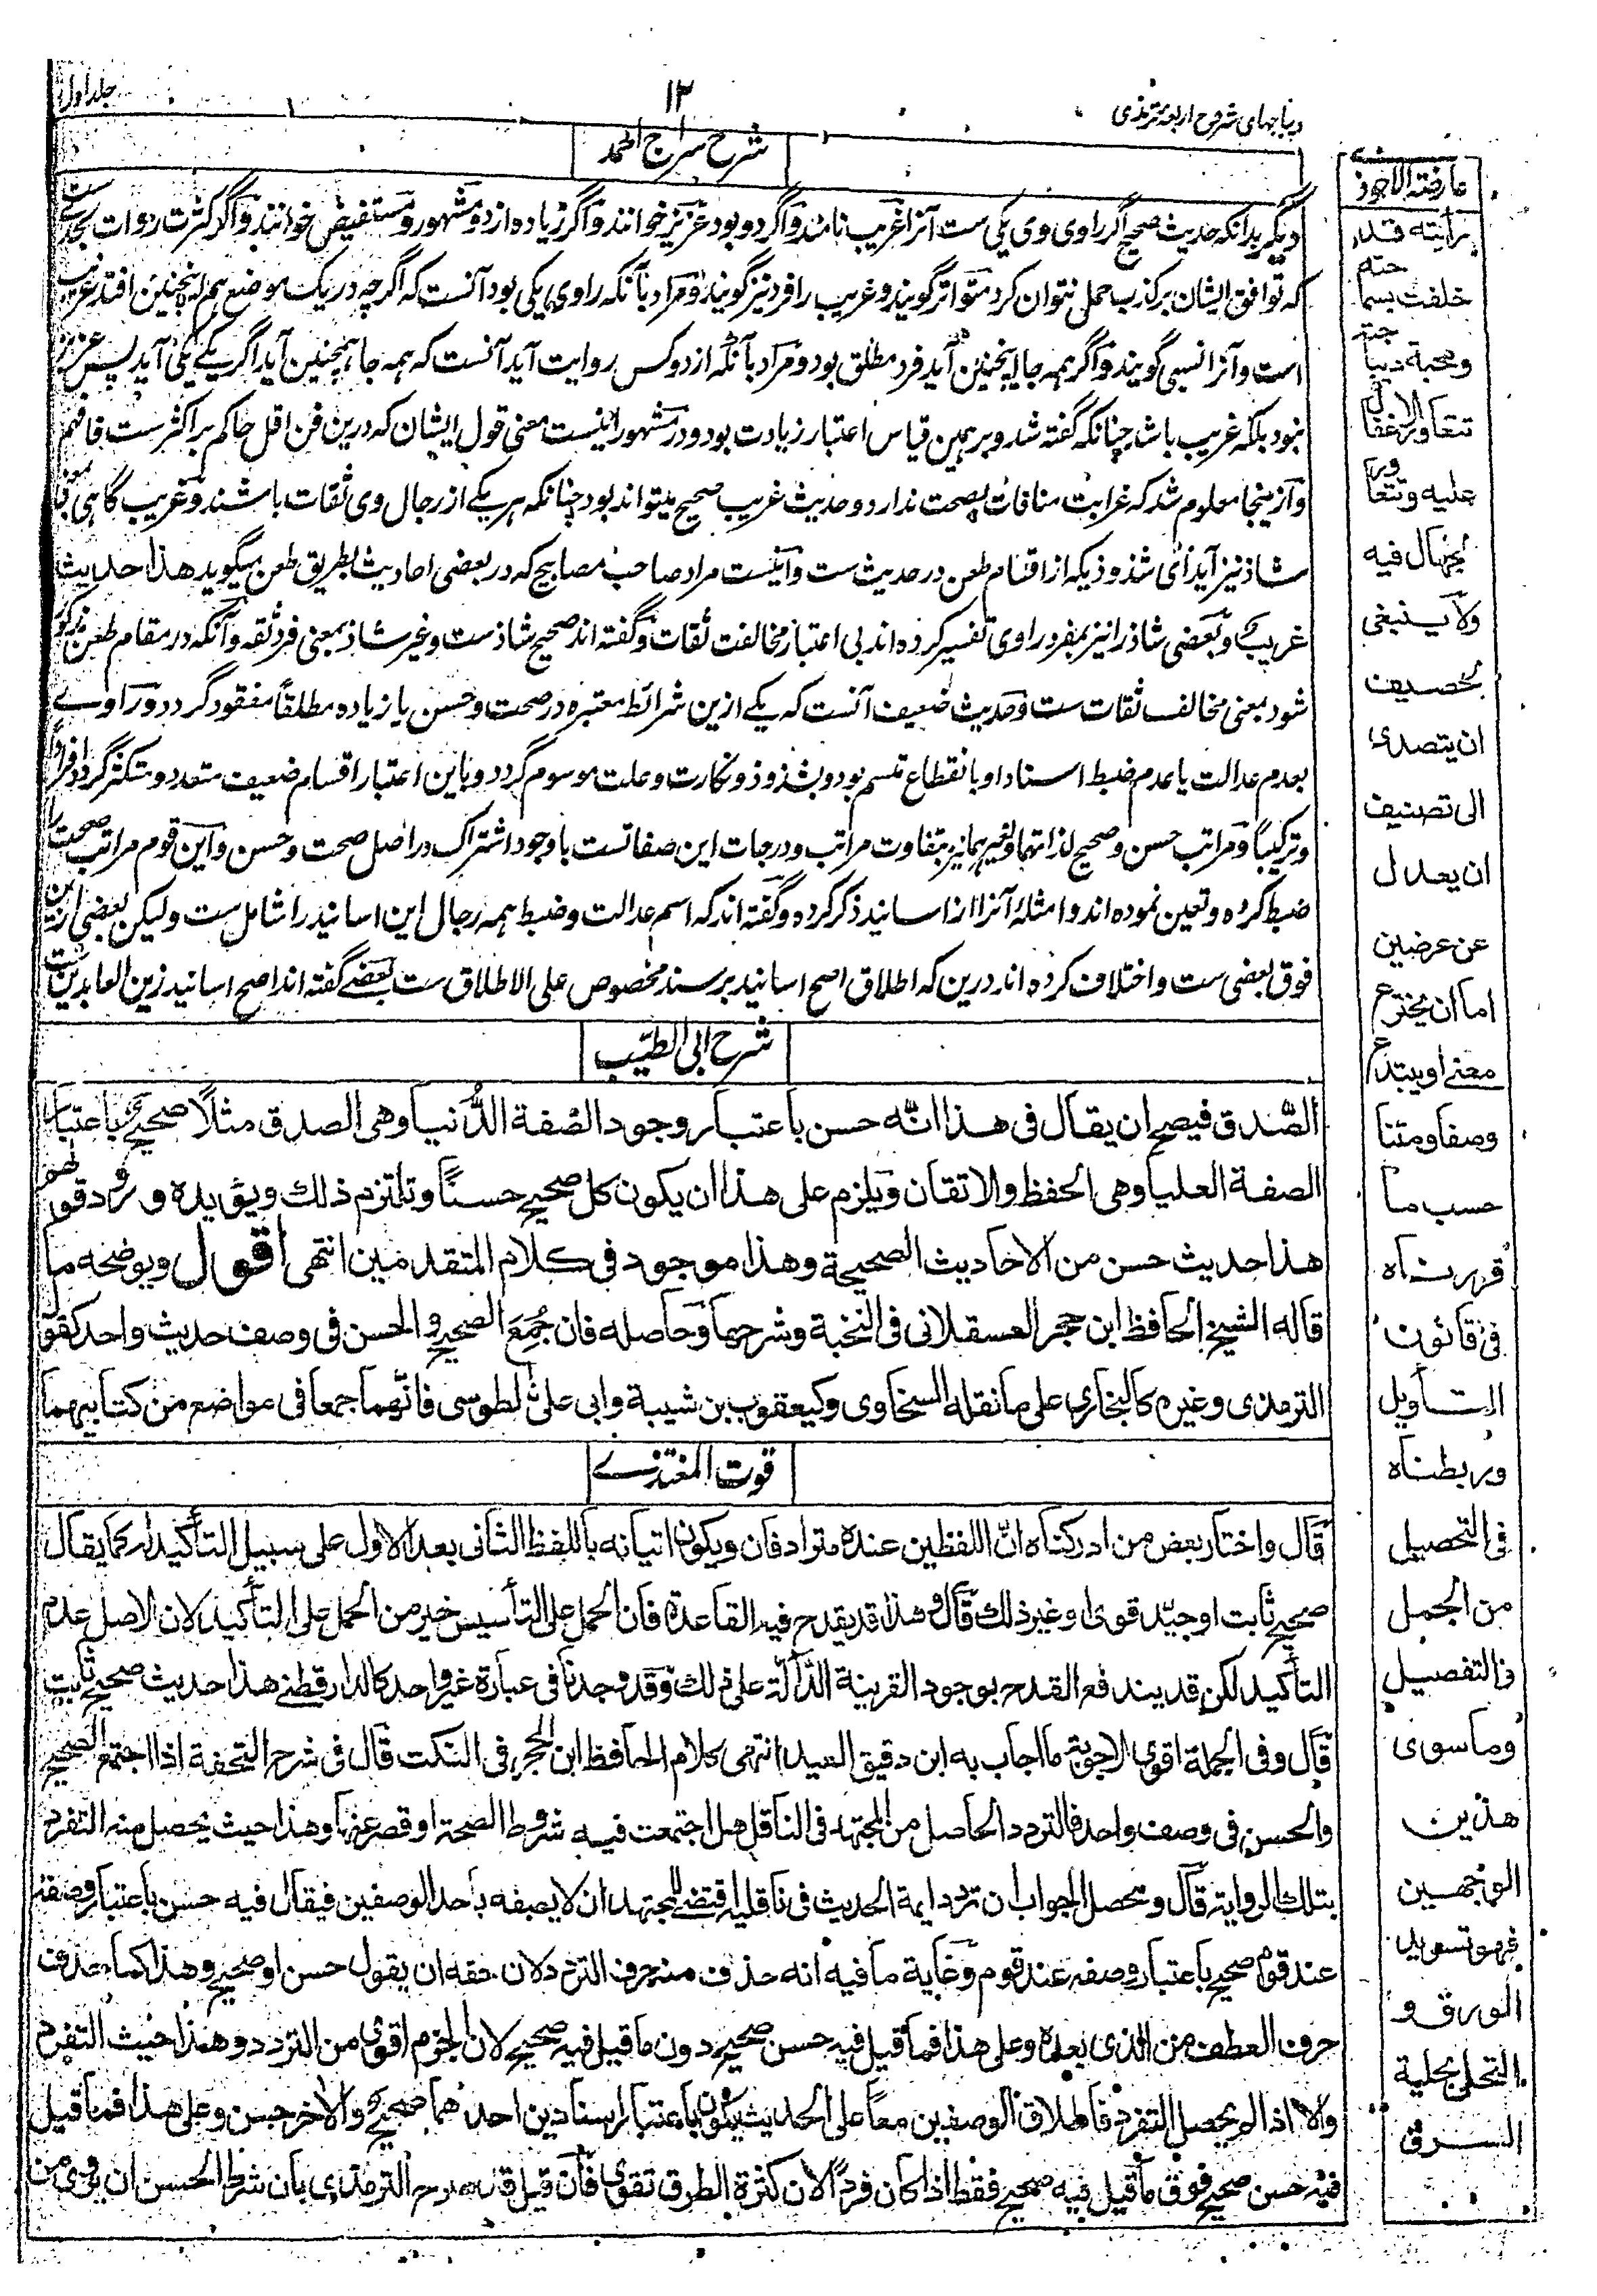 دیباچهای شروح اربعه ترمذی
۱۲
جلد اول
شرح سراج احمد
دیگر بدانکه حدیث صحیح اگر راوی وی یکی ست آنرا غریب نامند و اگر دو بود عزیز خوانند و اگر زیاده از دو مشهور و مستفیض خوانند و اگر کثرت روات بحدی ست
که توافق ایشان بر کذب حمل نتوان کرد متواتر گویند و غریب را فرد نیز گویند و مراد بآنکه راوی یکی بود آنست که اگرچه در یک موضع هم اینچنین افتد غریب
است و آنرا نسبی گویند و اگر همه جا اینچنین آید فرد مطلق بود و مراد بآنکه از دو کس روایت آید آنست که همه جا همچنین آید اگر یکے یکی آید پس عزیز
نبود بلکه غریب باشد چنانکه گفته شد و بر همین قیاس اعتبار زیادت بود در مشهور اینست معنی قول ایشان که درین فن اقل حاکم بر اکثر ست فافهم
و ازینجا معلوم شد که غرابت منافات بصحت ندارد و حدیث غریب صحیح میتواند بود چنانکه هر یکے از رجال وی ثقات باشند و غریب گاهی بمعنی
شاذ نیز آید ای شذوذیکه از اقسام طعن در حدیث ست و اینست مراد صاحب مصابیح که در بعضی احادیث بطریق طعن میگوید هذا حدیث
غریب و بعضی شاذ را نیز بمفرد راوی تفسیر کرده اند بی اعتبار مخالفت ثقات و گفته اند صحیح شاذ ست و غیر شاذ بمعنی فرد ثقه و آنکه در مقام طعن مذکور
شود بمعنی مخالف ثقات ست و حدیث ضعیف آنست که یکے ازین شرائط معتبره در صحت و حسن یا زیاده مطلقاً مفقود گردد و راوے
بعدم عدالت یا عدم ضبط اسناد او بانقطاع متسم بود و بشذوذ و نکارت و علت موسوم گردد و باین اعتبار اقسام ضعیف متعدد و متکثر گردد افراداً
و ترکیباً و مراتب حسن و صحیح لذاتهما و لغیرهما نیز بتفاوت مراتب و درجات این صفاتست باوجود اشتراک در اصل صحت و حسن و این قوم مراتب صحت را
ضبط کرده و تعین نموده اند و امثلهٔ آنرا از اسانید ذکر کرده و گفته اند که اسم عدالت و ضبط همه رجال این اسانید را شامل ست و لیکن بعضی ازین
فوق بعضی ست و اختلاف کرده اند درین که اطلاق اصح اسانید بر سند مخصوص علی الاطلاق ست بعضے گفته اند اصح اسانید زین العابدین ست
شرح ابی الطیّب
الصّدق فیصح ان یقال فی هذا انّه حسن باعتبار وجود الصفة الدُّنیا وهی الصدق مثلاً صحیحٌ باعتبار
الصفة العلیا وهی الحفظ والاتقان ویلزم علی هذا ان یکون کل صحیح حسنًا ونلتزم ذلك ویؤیده ورود قولهم
هذا حدیث حسن من الاحادیث الصحیحة وهذا موجود فی کلام المتقدمین انتهی اقول ویوضحه ما
قاله الشیخ الحافظ ابن حجر العسقلانی فی النخبة وشرحها وحاصله فان جُمِعَ الصحیح والحسن فی وصف حدیث واحد کقول
الترمذی وغیره کالبخاری علی ما نقله السخاوی وکیعقوب بن شیبة وابی علیّ الطوسی فانّهما جمعا فی مواضع من کتابیهما
قوت المغتذے
قال واختار بعض من ادرکناه انّ اللفظین عنده مترادفان ویکون اتیانه باللفظ الثانی بعد الاول علی سبیل التأکید له کما یقال
صحیح ثابت او جیّد قوی او غیر ذلك قال وهذا قد یقدح فیه القاعدة فان الحمل علی التأسیس خیر من الحمل علی التأکید لان الاصل عدم
التأکید لکن قد یندفع القدح بوجود القرینة الدّالّة علی ذلك وقد وجدنا فی عبارة غیر واحد کالدارقطنے هذا حدیث صحیح ثابت
قال وفی الجملة اقوی الاجوبة ما اجاب به ابن دقیق العید انتهی کلام الحافظ ابن الحجر فی النکت قال فی شرح النخبة اذا اجتمع الصحیح
والحسن فی وصف واحد فالتردد الحاصل من المجتهد فی الناقل هل اجتمعت فیه شروط الصحة او قصر عنها وهذا حیث یحصل منه التفرد
بتلك الروایة قال ومحصل الجواب ان تردد ایمة الحدیث فی ناقلیه اقتضے للمجتهد ان لا یصفه باحد الوصفین فیقال فیه حسن باعتبار وصفه
عند قوم صحیح باعتبار وصفه عند قوم وغایة ما فیه انه حذف منه حرف التردد لان حقه ان یقول حسن او صحیح وهذا کما حذف
حرف العطف من الذی بعده وعلی هذا فما قیل فیه حسن صحیح دون ما قیل فیه صحیح لان الجزم اقوی من التردد وهذا حیث التفرد
والا اذا لم یحصل التفرد فاطلاق الوصفین معاً علی الحدیث یکون باعتبار اسنادین احدهما صحیح والآخر حسن وعلی هذا فما قیل
فیه حسن صحیح فوق ما قیل فیه صحیح فقط اذا کان فرداً لان کثرة الطرق تقوی فان قیل قد صرح الترمذی بان شرط الحسن ان یروی من
عارضة الاحوذ
برأیته قدر
خلفت بسما حته
وهجبة دیبا جته
علیه وتتعاور
الجهال فیه
ولا ینبغی
لحصیف
ان یتصدی
الی تصنیف
ان یعدل
عن غرضین
اما ان یخترع
معنے او یبتدع
وصفا ومتنا
حسب ما
قررناه
فی قانون
التأویل
وربطناه
فی التحصیل
من الجمل
والتفصیل
وما سوی
هذین
الوجهین
فهو تسوید
الورق و
التحلی بحلیة
السرق